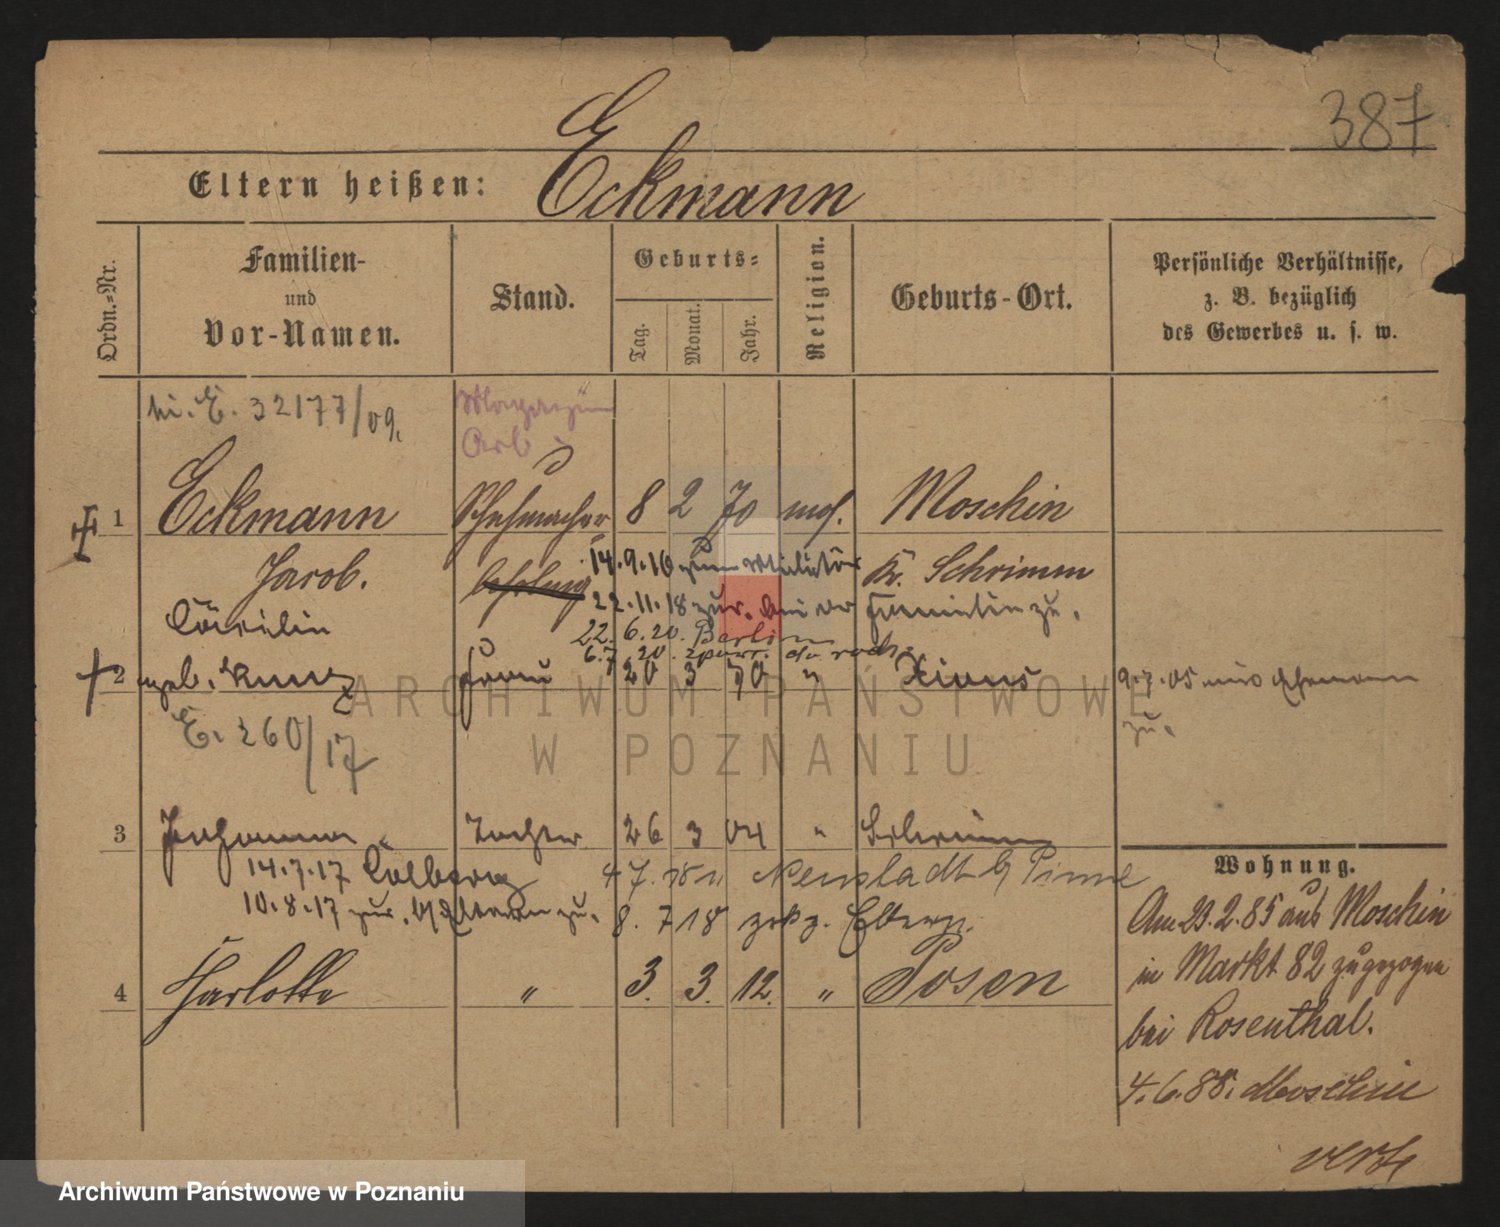 387
Eltern heißen: Eckmann
Ordn.-Nr.
Familien-
und
Vor-Namen.
Stand.
Geburts-
Tag.
Monat.
Jahr.
Religion.
Geburts-Ort.
Persönliche Verhältnisse,
z. B. bezüglich
des Gewerbes u. s. w.
E. 32177/09.
Arb
1 Eckmann Schuhmacher 8 2 70 mos. Moschin
Jacob. 14.9.16 zum Militär Kr. Schrimm
22.11.18 zur. zu.
22. 6. 20. Berlin
6.7.20.
2 geb. Frau 20 3 70 " Xions 9.7.05 Ehemann
zu.
E. 260/17
3 Johanna Tochter 26 3 04 " Schrimm
14.7.17 Colberg 4 7. 18 n Neustadt b/ Pinne
10.8.17 zur. Eltern zu. 8. 7 18 zrkg. Eltern.
4 Charlotte " 3. 3. 12. " Posen
Wohnung.
Am 23.2.85 aus Moschin
in Markt 82 zugezogen
bei Rosenthal.
4.6.88. Moschin
verte
ARCHIWUM PAŃSTWOWE
W POZNANIU
Archiwum Państwowe w Poznaniu